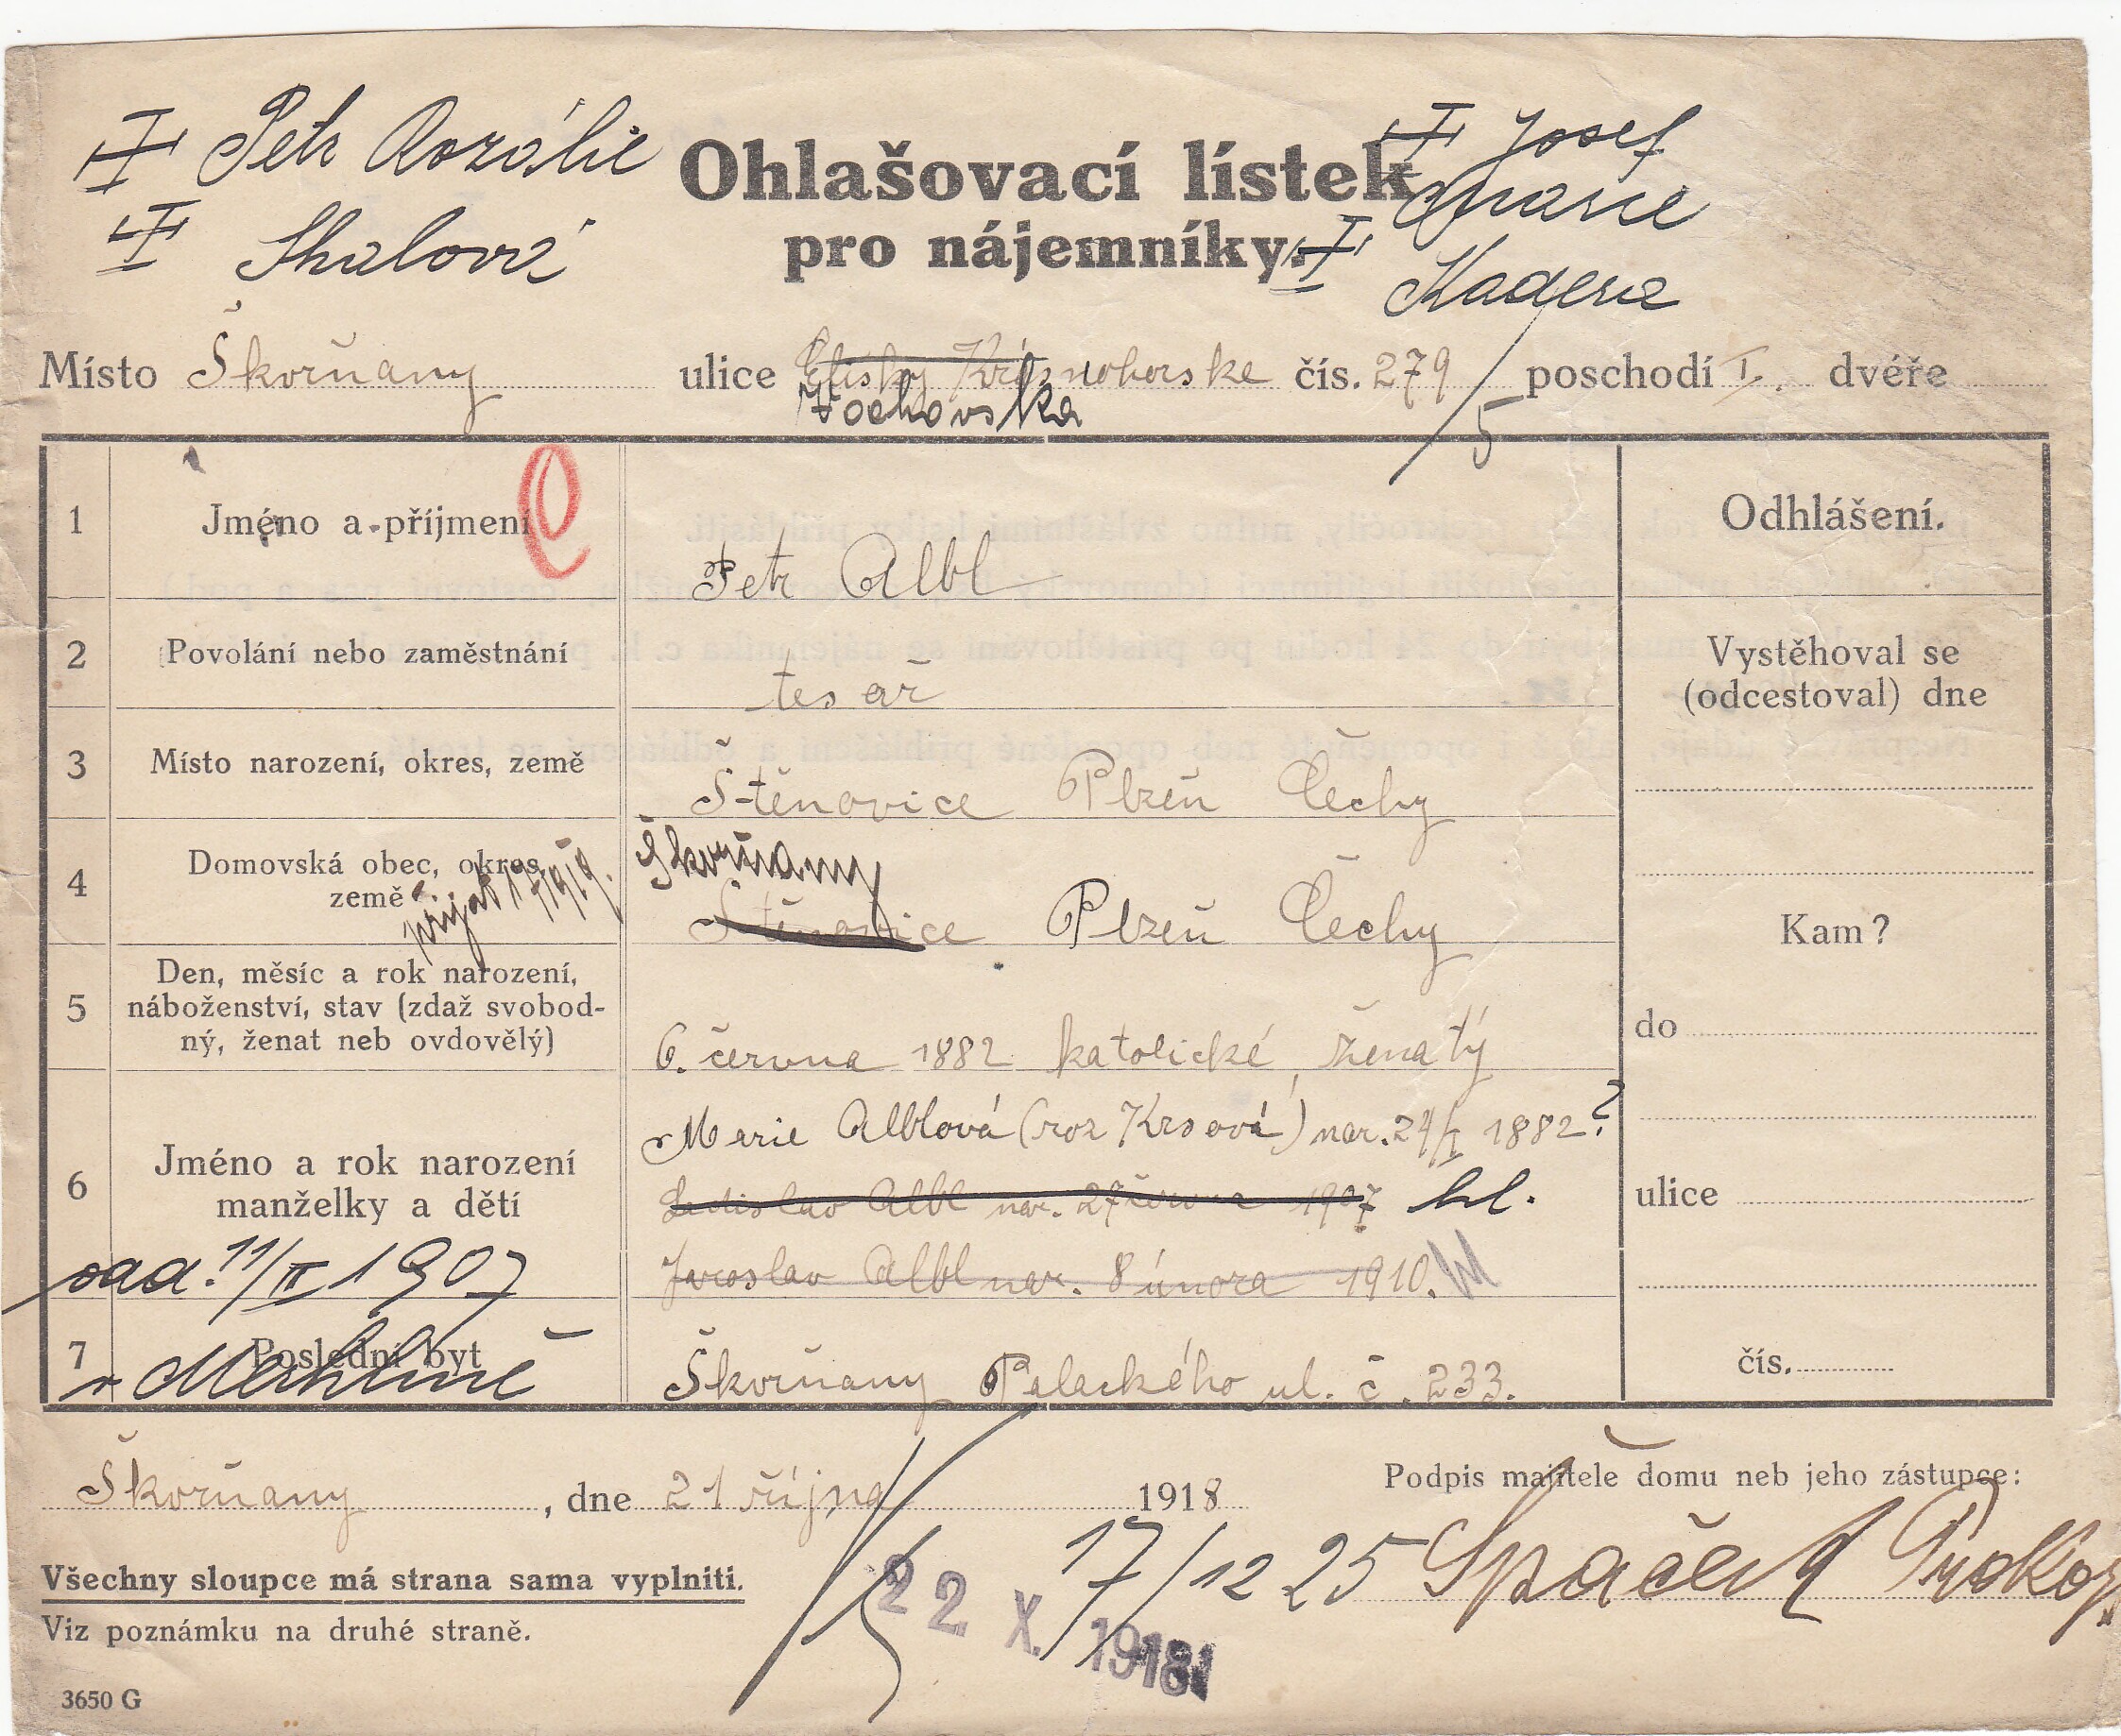 Petr Rozálie
Skalová
Josef
Marie
Kaderа
Ohlašovací lístek
pro nájemníky.
Místo Škvrňany ulice Elišky Krásnohorske čís. 279 poschodí I. dvéře
Vochovska
5
1 Jméno a příjmení Petr Albl
Odhlášení.
2 Povolání nebo zaměstnání tesař
Vystěhoval se
(odcestoval) dne
3 Místo narození, okres, země Štěnovice Plzeň Čechy
Škvrňany
4 Domovská obec, okres,
země přijat 17/1919. Štěnovice Plzeň Čechy
Kam?
5 Den, měsíc a rok narození,
náboženství, stav (zdaž svobod-
ný, ženat neb ovdovělý) 6. června 1882 katolické, ženatý
do
Marie Alblová (roz Krsová) nar. 24/I 1882?
6 Jméno a rok narození
manželky a dětí
Ladislav Albl nar. 27 června 1907 hl.
ulice
odd. 11/II 1907
Jaroslav Albl nar. 8 února 1910.
7 Poslední byt Škvrňany Palackého ul. č. 233.
v Merklíně
čís.
Škvrňany, dne 21 října 1918
Podpis majitele domu neb jeho zástupce:
17/12 25 Špaček Prokop
22 X. 1918
Všechny sloupce má strana sama vyplniti.
Viz poznámku na druhé straně.
3650 G